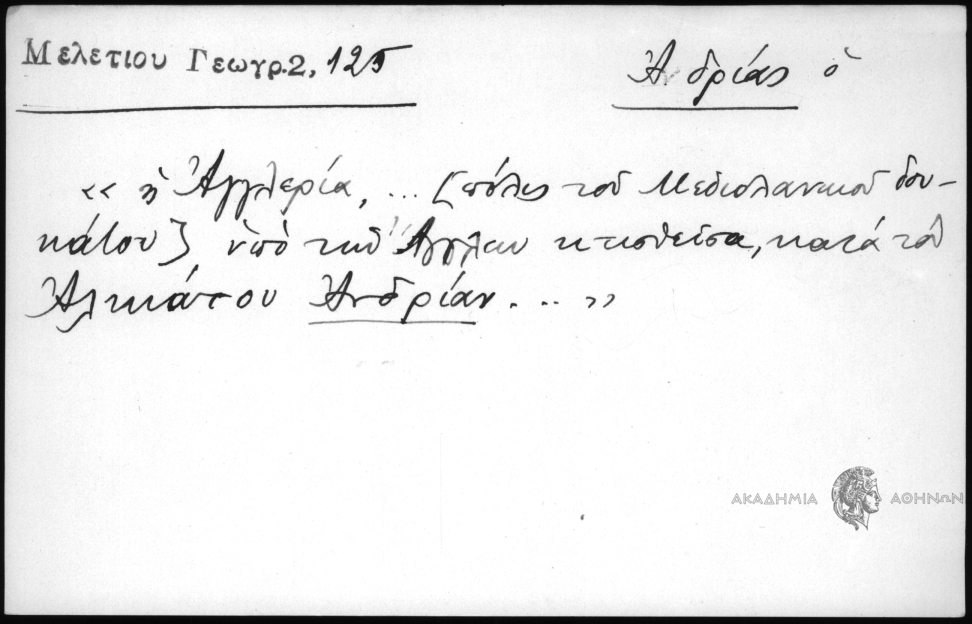 Μελετίου Γεωγρ. 2, 125
Ἀνδρίας ὁ
« ἡ Ἀγγλερία, ... [πόλις τοῦ Μεδιολανικοῦ δου-
κάτου] ὑπὸ τοῦ κτισθεῖσα, κατὰ τὸν
Ἀλκιάτου Ἀνδρίαν. . . »
ΑΚΑΔΗΜΙΑ ΑΘΗΝΩΝ